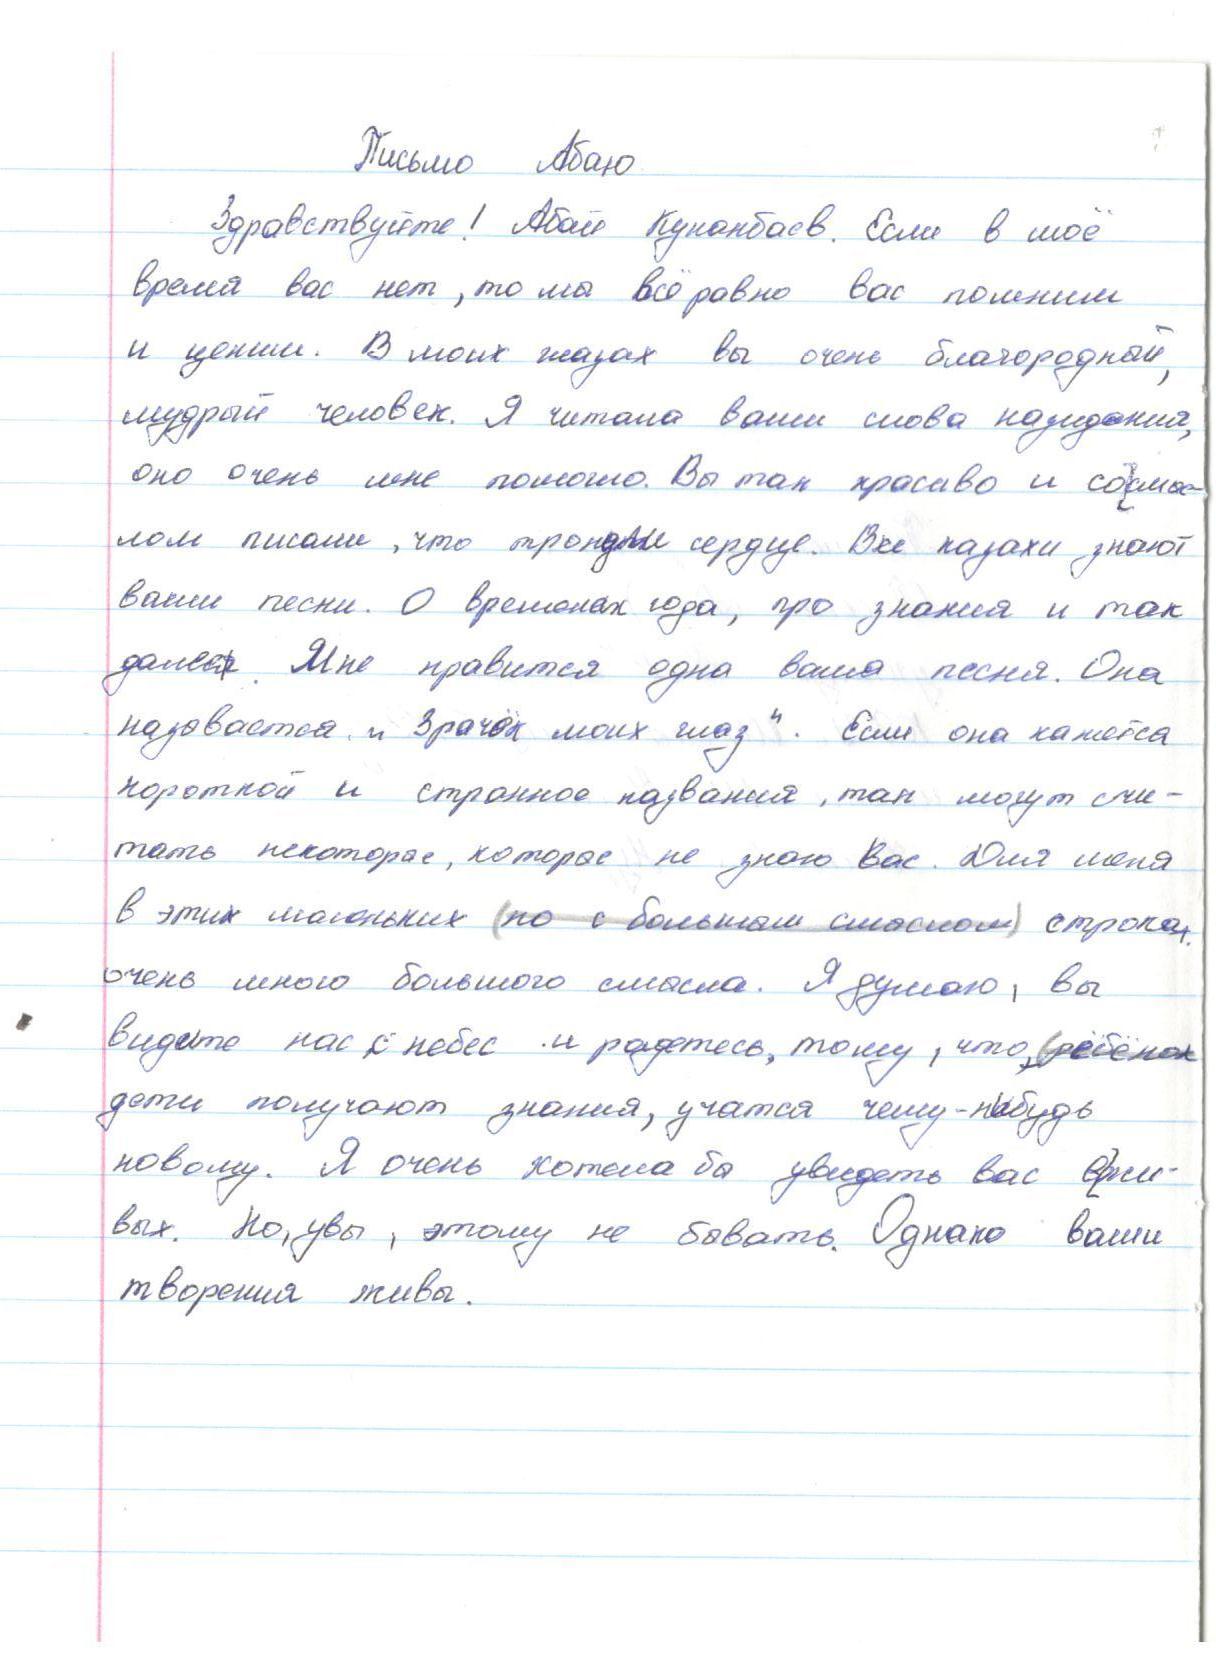 Письмо Абаю
Здравствуйте! Абай Кунанбаев. Если в моё
время вас нет, то мы всё равно вас помним
и ценим. В моих глазах вы очень благородный,
мудрый человек. Я читала ваши слова назиданий,
оно очень мне помогло. Вы так красиво и со смыс-
лом писали, что тронули сердце. Все казахи знают
ваши песни. О временах года, про знания и так
далее. Мне нравится одна ваша песня. Она
называется „Зрачок моих глаз". Если она кажется
короткой и странное названия, так могут счи-
тать некоторые, которые не знаю Вас. Для меня
в этих маленьких (но с большым смыслом) строках.
очень много большого смысла. Я думаю, вы
видите нас с небес и радетесь, тому, что, (ребёнок
дети получают знания, учатся чему-нибудь
новому. Я очень хотела бы увидеть вас вжи-
вых. Но, увы, этому не бывать. Однако ваши
творения живы.